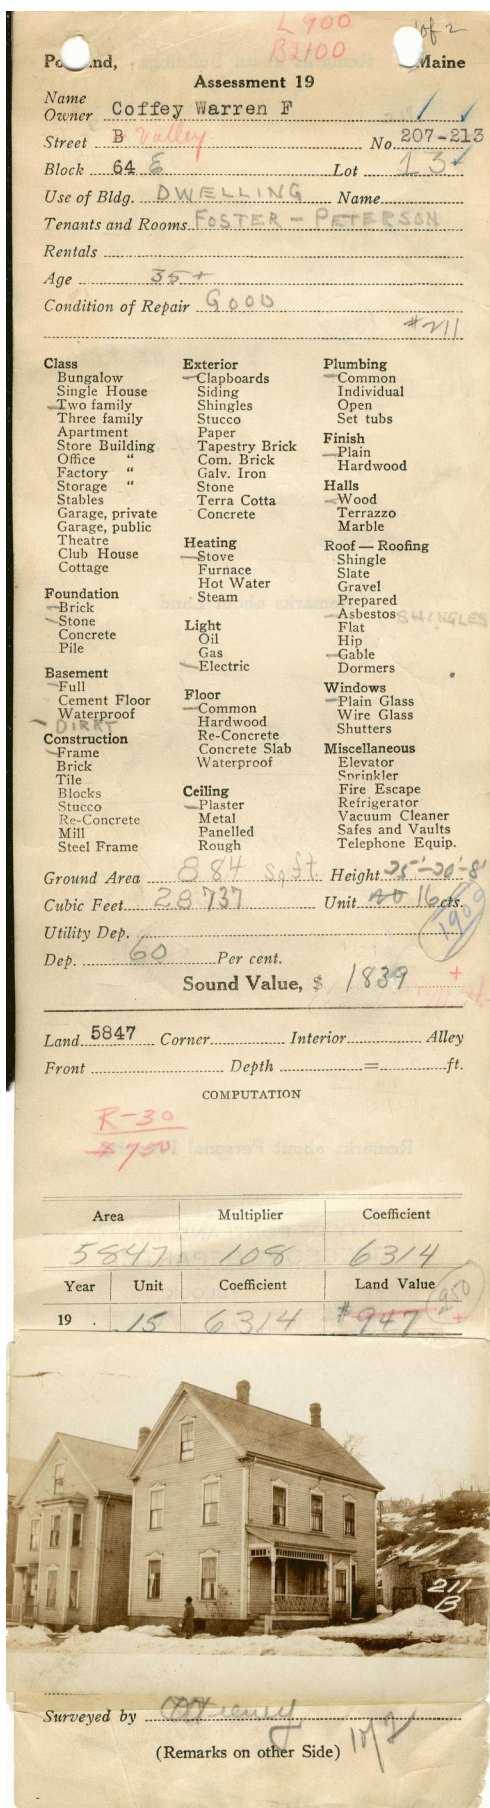 L 900
B2100
1 of 2
Po nd, Maine
Assessment 19
Name
Owner Coffey Warren F
Street B Valley No. 207-213
Block 64 E Lot 13
Use of Bldg. DWELLING Name
Tenants and Rooms FOSTER - PETERSON
Rentals
Age 35+
Condition of Repair GOOD
#211
Class
Bungalow
Single House
Two family
Three family
Apartment
Store Building
Office "
Factory "
Storage "
Stables
Garage, private
Garage, public
Theatre
Club House
Cottage
Foundation
Brick
Stone
Concrete
Pile
Basement
Full
Cement Floor
Waterproof
DIRRT
Construction
Frame
Brick
Tile
Blocks
Stucco
Re-Concrete
Mill
Steel Frame
Exterior
Clapboards
Siding
Shingles
Stucco
Paper
Tapestry Brick
Com. Brick
Galv. Iron
Stone
Terra Cotta
Concrete
Heating
Stove
Furnace
Hot Water
Steam
Light
Oil
Gas
Electric
Floor
Common
Hardwood
Re-Concrete
Concrete Slab
Waterproof
Ceiling
Plaster
Metal
Panelled
Rough
Plumbing
Common
Individual
Open
Set tubs
Finish
Plain
Hardwood
Halls
Wood
Terrazzo
Marble
Roof — Roofing
Shingle
Slate
Gravel
Prepared
Asbestos SHINGLES
Flat
Hip
Gable
Dormers
Windows
Plain Glass
Wire Glass
Shutters
Miscellaneous
Elevator
Sprinkler
Fire Escape
Refrigerator
Vacuum Cleaner
Safes and Vaults
Telephone Equip.
Ground Area 884 sq ft. Height 25'-20'-8'
Cubic Feet 28737 Unit 20 16 cts.
Utility Dep. 1909
Dep. 60 Per cent.
Sound Value, $ 1839 +
Land 5847 Corner Interior Alley
Front Depth = ft.
COMPUTATION
R-30
$750
Area Multiplier Coefficient
5847 108 6314
Year Unit Coefficient Land Value
19 . .15 6314 $947 +
950
211
B
Surveyed by
(Remarks on other Side) 1 of 2